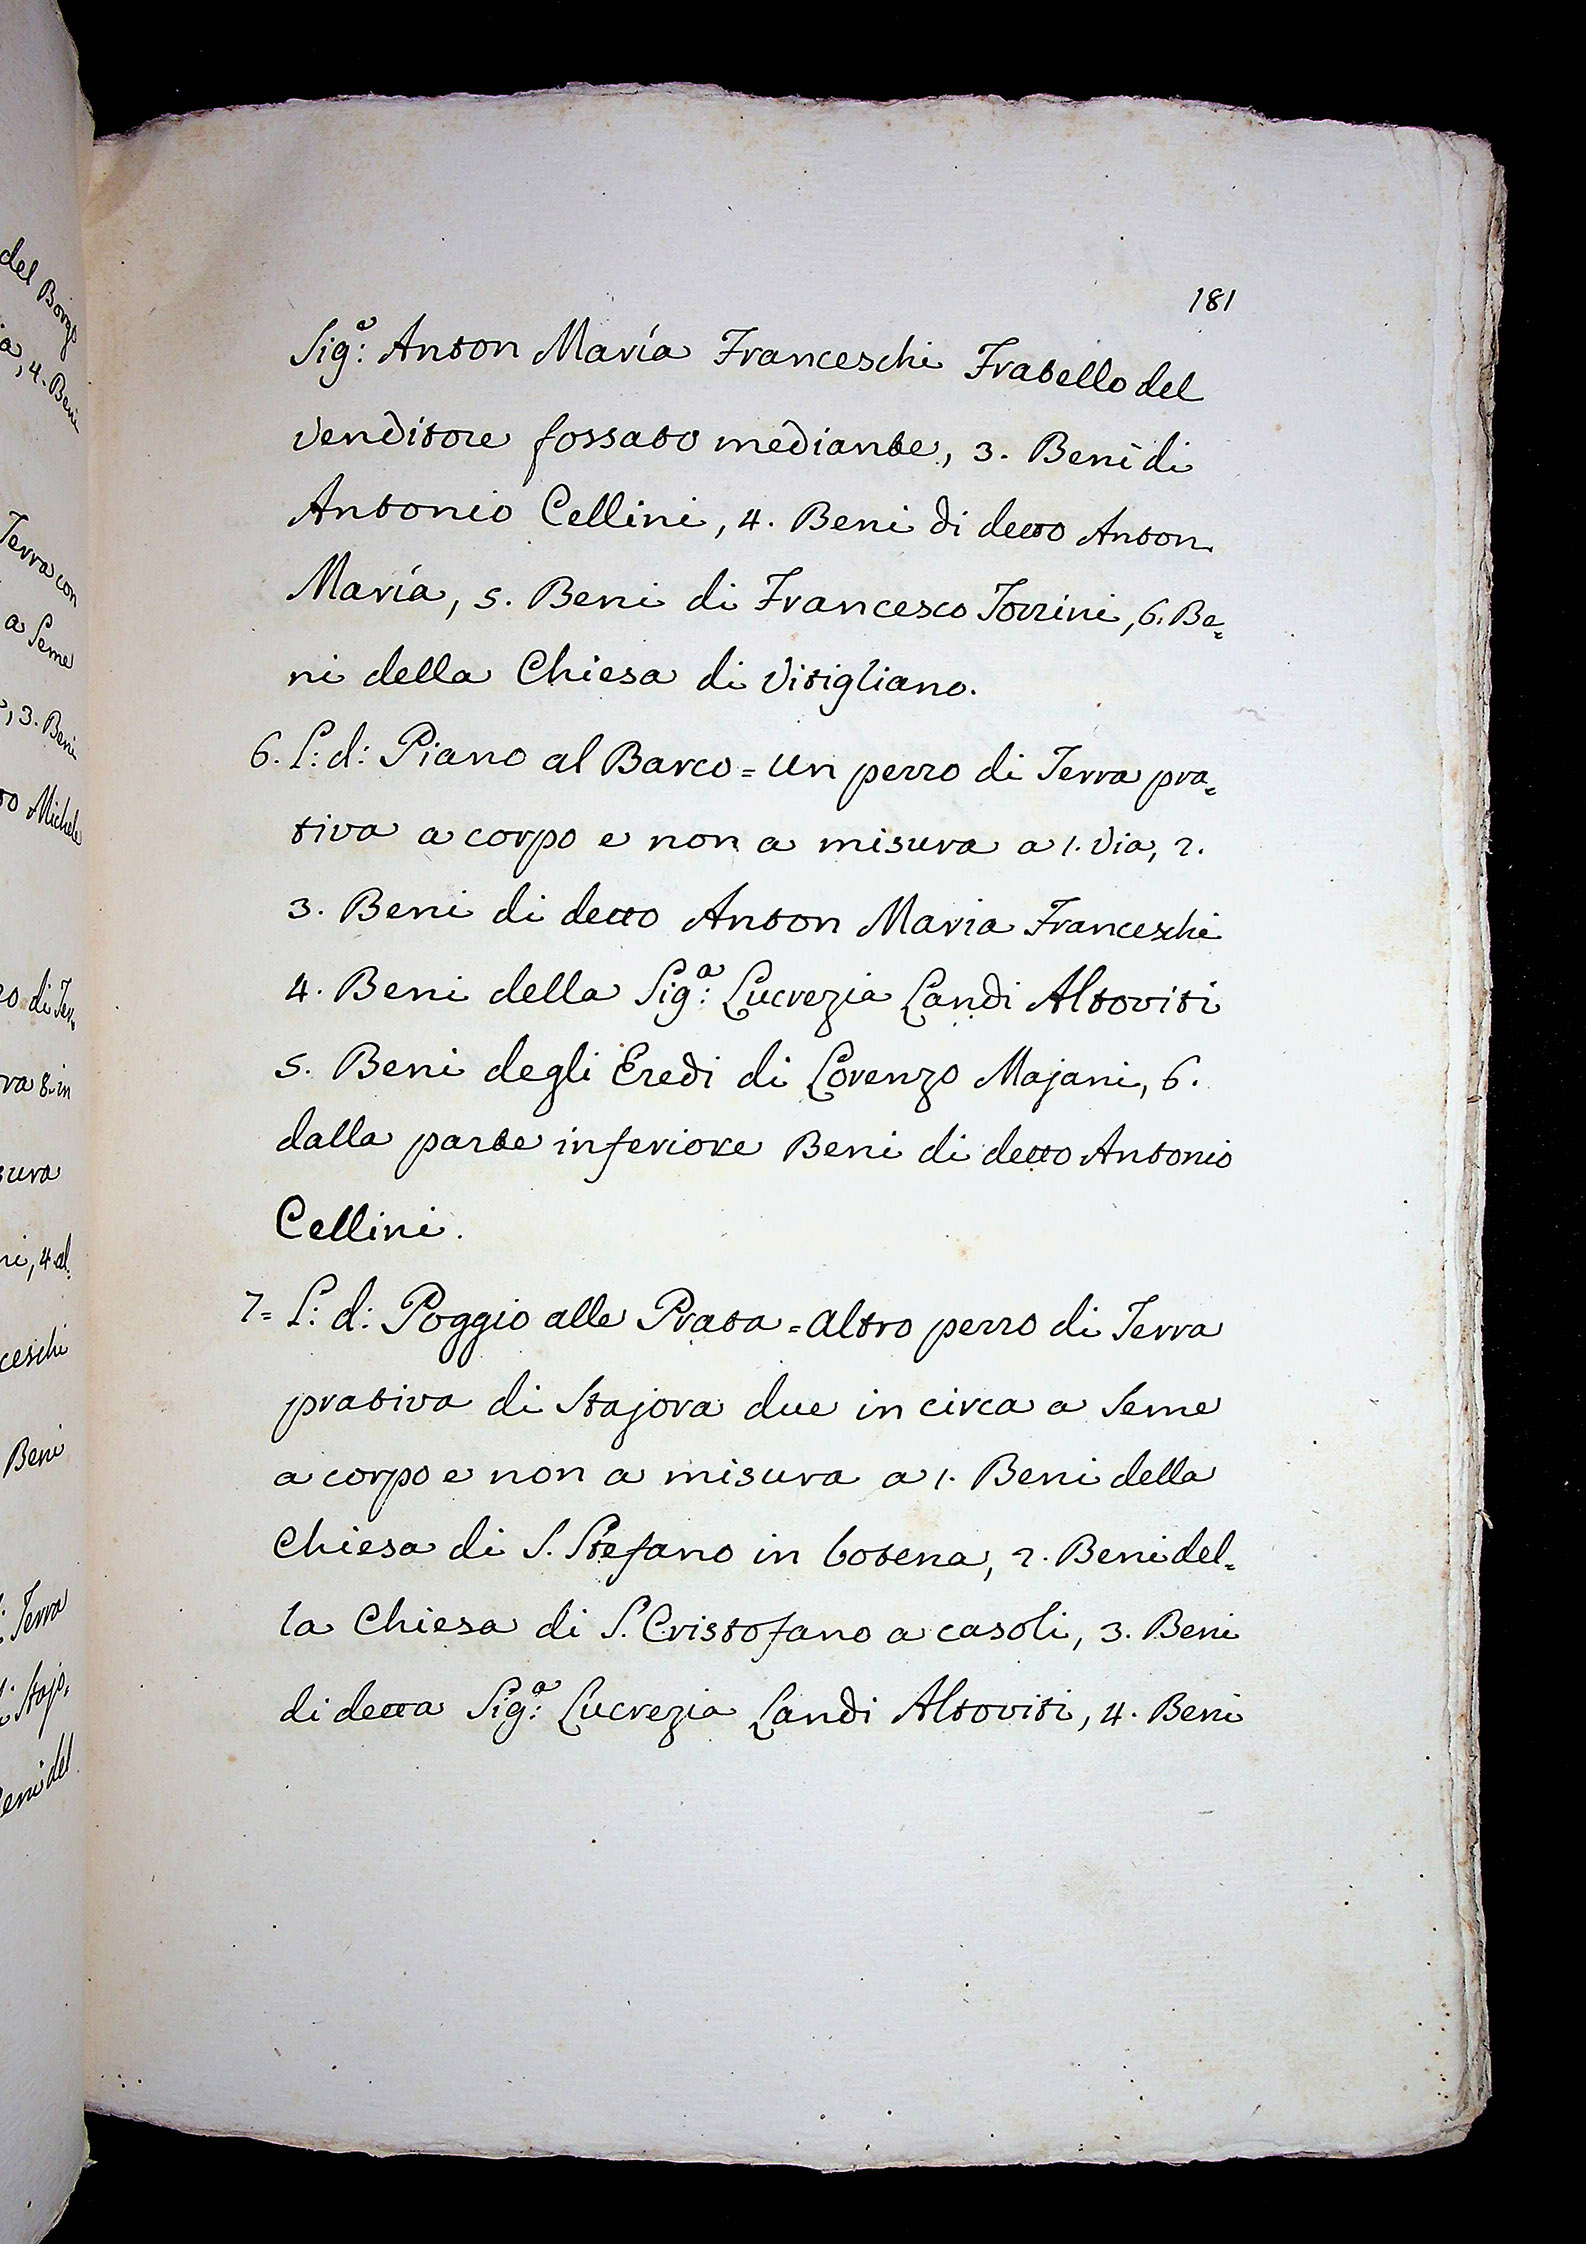 del Borgo
ia, 4. Beni
Terra con
a Seme
, 3. Beni
to Michele
zo di Ter,
ra 8. in
sura
ni, 4 al:
ceschi
Beni
: Terra
Stajo,
Beni del
181
Sig.ᵉ Anton María Franceschi Fratello del
Venditore fossato mediante, 3. Beni di
Antonio Cellini, 4. Beni di detto Anton
María, 5. Beni di Francesco Torrini, 6. Be=
ni della Chiesa di Vitigliano.
6. L: d: Piano al Barco = Un pezzo di Terra pra=
tiva a corpo e non a misura a 1. Via, 2.
3. Beni di detto Anton Maria Franceschi
4. Beni della Sig:ᵃ Lucrezia Landi Altoviti
5. Beni degli Eredi di Lorenzo Majani, 6.
dalla parte inferiore Beni di detto Antonio
Cellini.
7= L: d: Poggio alle Prata = altro pezzo di Terra
prativa di Stajora due in circa a Seme
a corpo e non a misura a 1. Beni della
Chiesa di S. Stefano in botena, 2. Beni del=
la Chiesa di S. Cristofano a casoli, 3. Beni
di detta Sig:ᵃ Lucrezia Landi Altoviti, 4. Beni